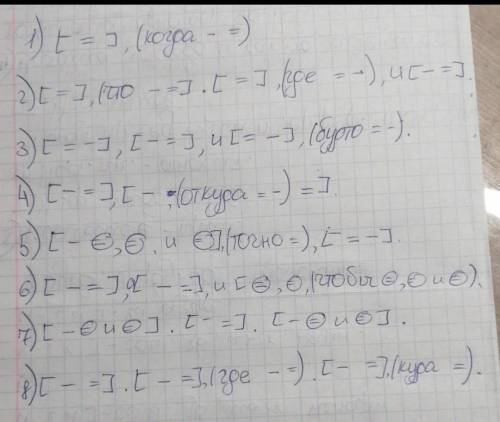 1) [ = ], (когда - =)
2) [ = ], (что - =]. [ = ], (где = -), и [ - = ].
3) [ = - ], [ - = ], и [ = - ], (будто = -).
4) [ - = ], [ - , (откуда = -) = ].
5) [ - ⊖, ⊖ и ⊖], (точно =), [ = - ].
6) [ - = ], [ - = ], и [ ⊖, ⊖, (чтобы ⊖, ⊖ и ⊖).
7) [ - ⊖ и ⊖ ]. [ - = ]. [ - ⊖ и ⊖ ].
8) [ - = ]. [ - = ], (где - =). [ - = ], (куда =).